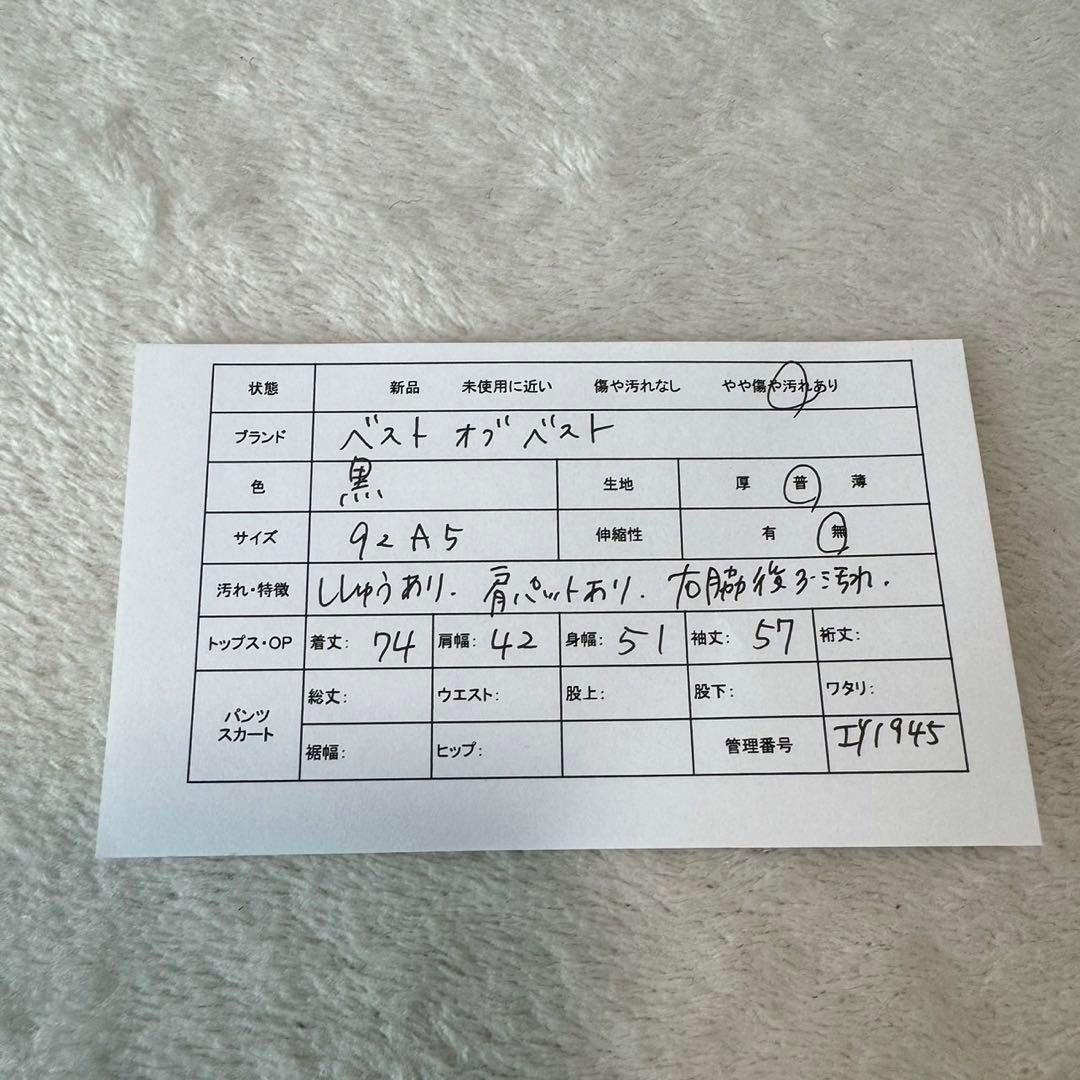 状態 新品 未使用に近い 傷や汚れなし やや傷や汚れあり
ブランド ベスト オブ ベスト
色 黒 生地 厚 普 薄
サイズ 92A5 伸縮性 有 無
汚れ・特徴 ししゅうあり. 肩パットあり. 右脇後ろ汚れ.
トップス・OP 着丈: 74 肩幅: 42 身幅: 51 袖丈: 57 裄丈:
パンツ スカート 総丈: ウエスト: 股上: 股下: ワタリ:
裾幅: ヒップ: 管理番号 1945